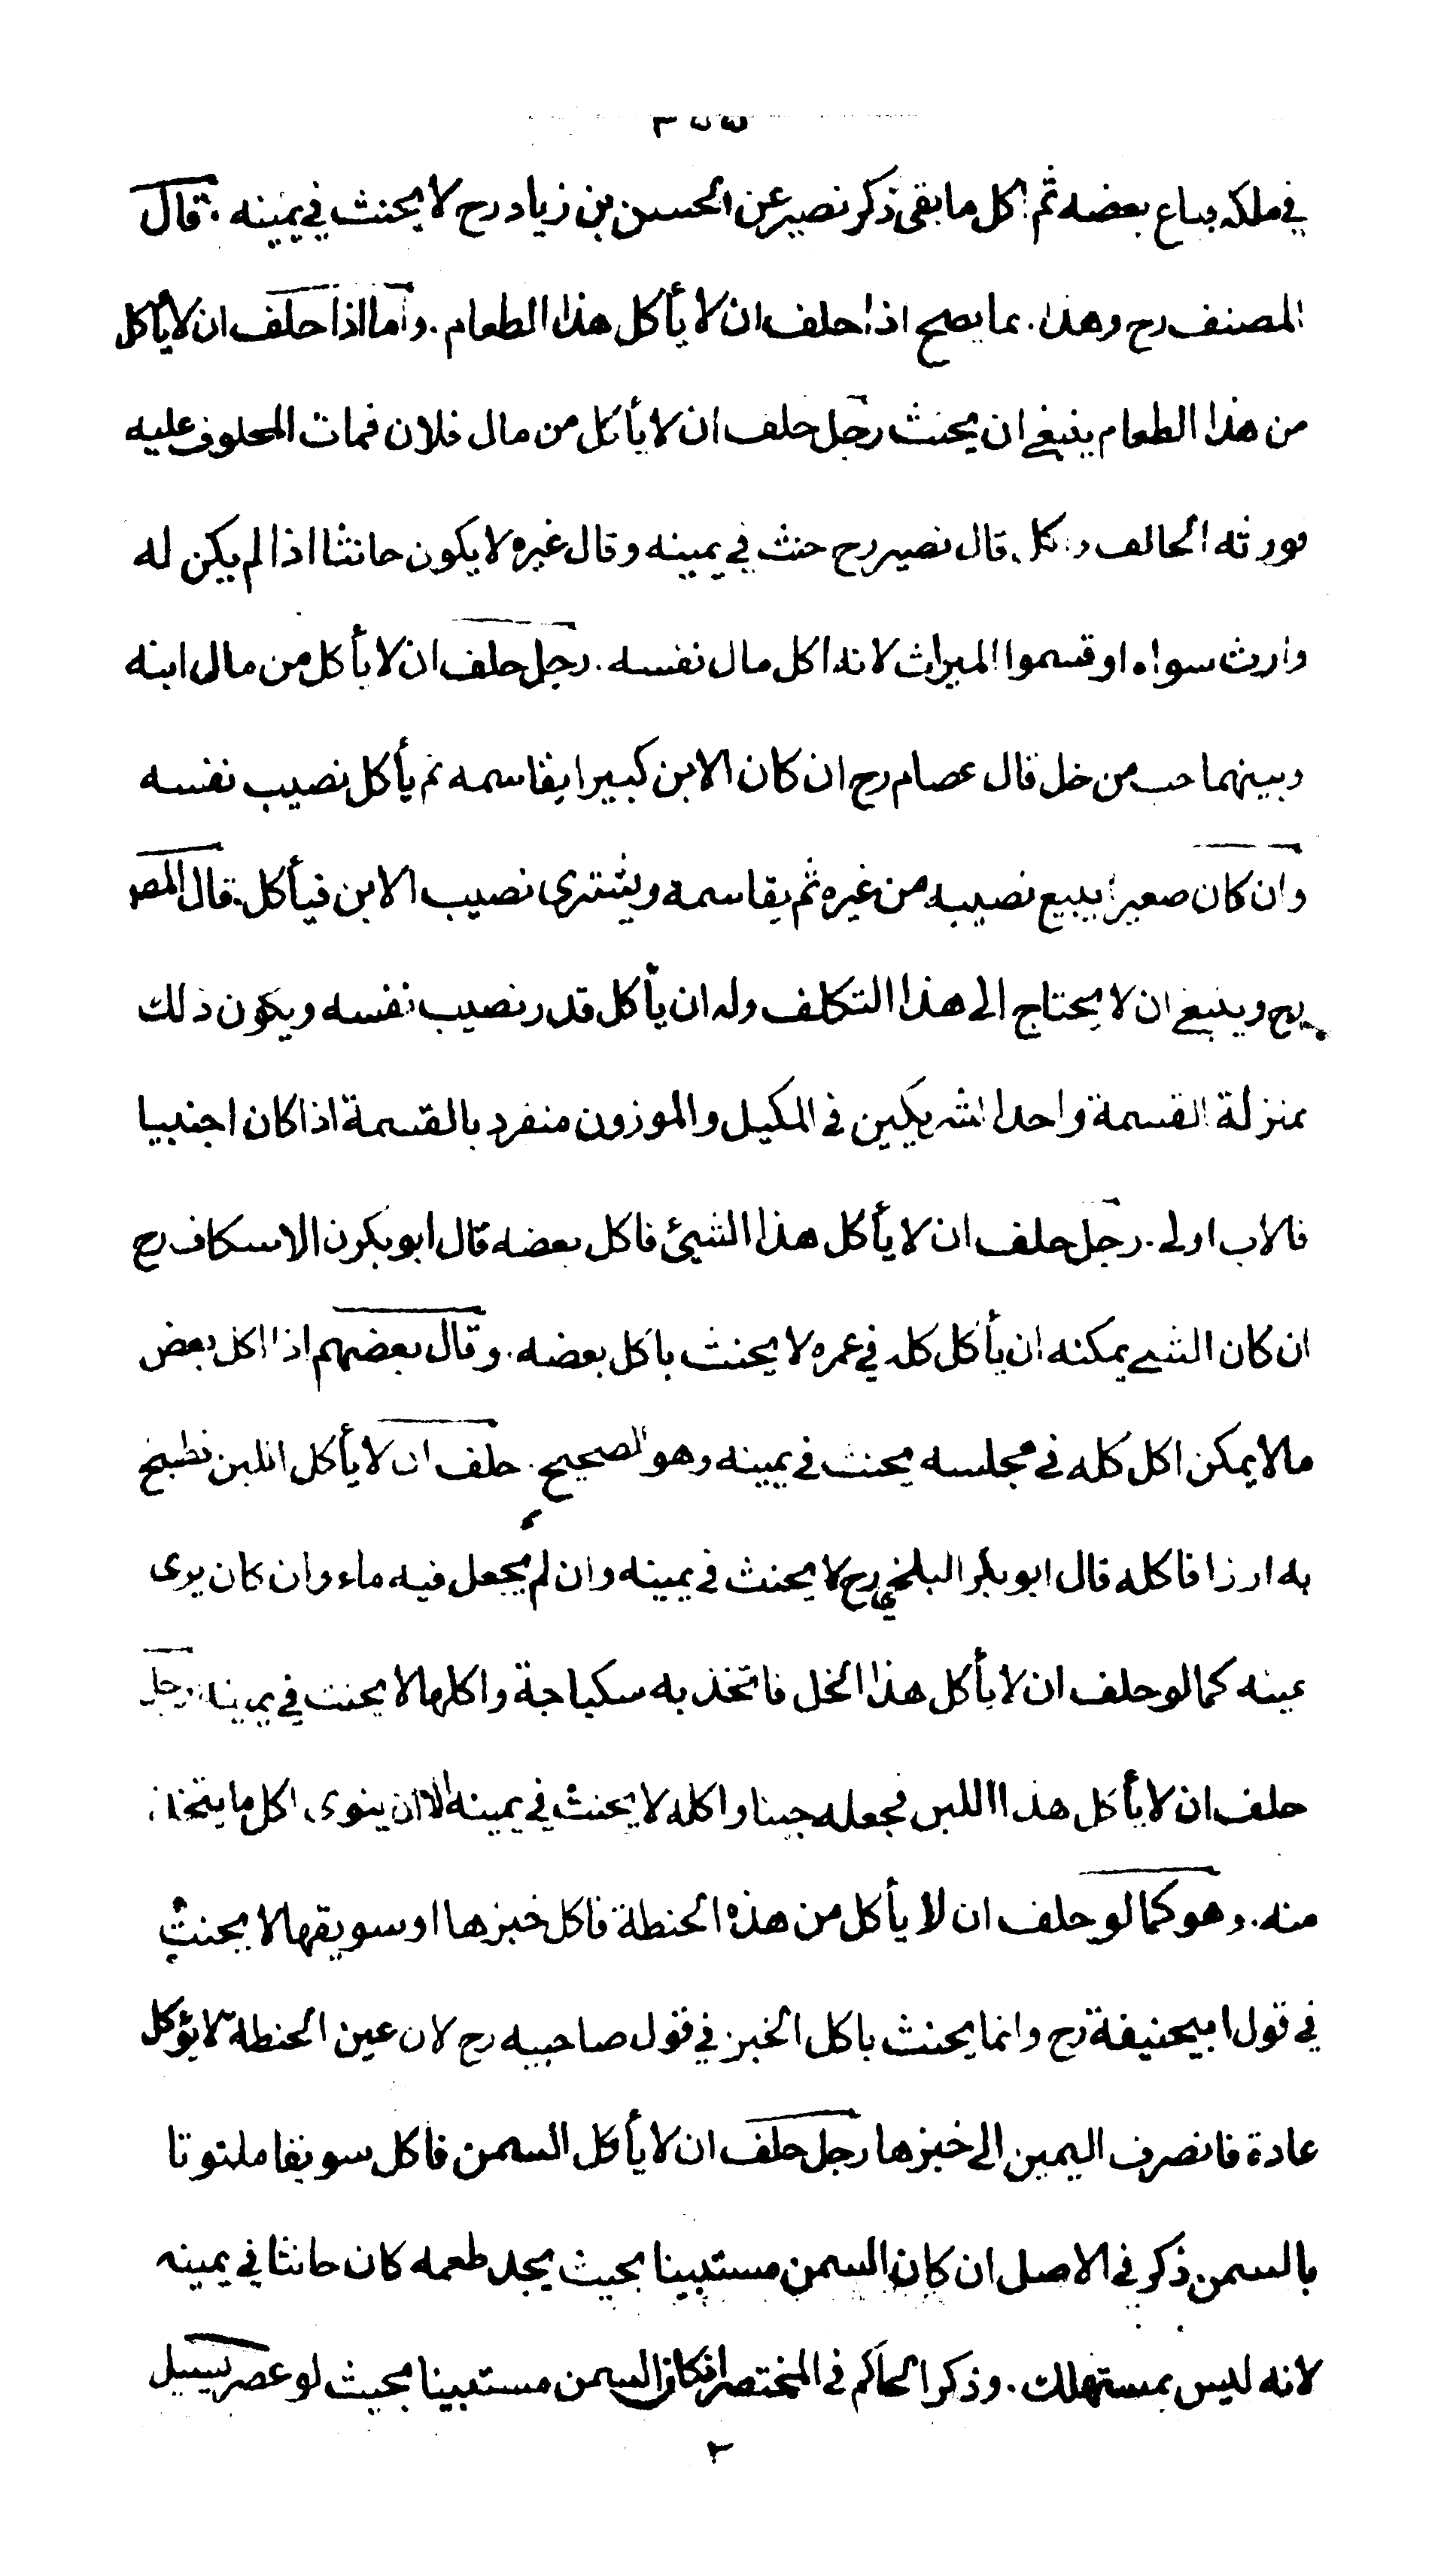 في ملكه فباع بعضه ثم اكل ما بقى ذكر نصير عن الحسن بن زياد رح لا يحنث في يمينه . قال
المصنف رح وهذا . بما يصح اذا حلف ان لا يأكل هذا الطعام . واما اذا حلف ان لا يأكل
من هذا الطعام ينبغي ان يحنث رجل حلف ان لا يأكل من مال فلان فمات المحلوف عليه
فورثه الحالف واكل قال نصير رح حنث في يمينه وقال غيره لا يكون حانثا اذا لم يكن له
وارث سواه او قسموا الميراث لانه اكل مال نفسه . رجل حلف ان لا يأكل من مال ابنه
وبينهما حب من خل قال عصام رح ان كان الابن كبيرا يقاسمه ثم يأكل نصيب نفسه
وان كان صغيرا يبيع نصيبه من غيره ثم يقاسمه ويشترى نصيب الابن فيأكل . قال المصـ
رح وينبغي ان لا يحتاج الى هذا التكلف وله ان يأكل قدر نصيب نفسه ويكون ذلك
بمنزلة القسمة واحد الشريكين في المكيل والموزون منفرد بالقسمة اذا كان اجنبيا
فالاب اولى . رجل حلف ان لا يأكل هذا الشيئ فاكل بعضه قال ابوبكرن الاسكاف رح
ان كان الشيء يمكنه ان يأكل كله في عمره لا يحنث باكل بعضه . وقال بعضهم اذا اكل بعض
مالا يمكن اكل كله في مجلسه يحنث في يمينه وهو الصحيح . حلف ان لا يأكل اللبن فطبخ
به ارزا فاكله قال ابوبكر البلخي رح لا يحنث في يمينه وان لم يجعل فيه ماء وان كان يرى
عينه كما لو حلف ان لا يأكل هذا الخل فاتخذ به سكباجة واكلها لا يحنث في يمينه رجل
حلف ان لا يأكل هذا اللبن فجعله جبنا واكله لا يحنث في يمينه الا ان ينوى اكل ما يتخذ
منه . وهو كما لو حلف ان لا يأكل من هذه الحنطة فاكل خبزها او سويقها لا يحنث
في قول ابيحنيفة رح وانما يحنث باكل الخبز في قول صاحبيه رح لان عين الحنطة لا يؤكل
عادة فانصرف اليمين الى خبزها رجل حلف ان لا يأكل السمن فاكل سويقا ملتوتا
بالسمن ذكر في الاصل ان كان السمن مستبينا بحيث يجد طعمه كان حانثا في يمينه
لانه ليس بمستهلك . وذكر الحاكم في المختصر ان كان السمن مستبينا بحيث لو عصر يسيل
٢